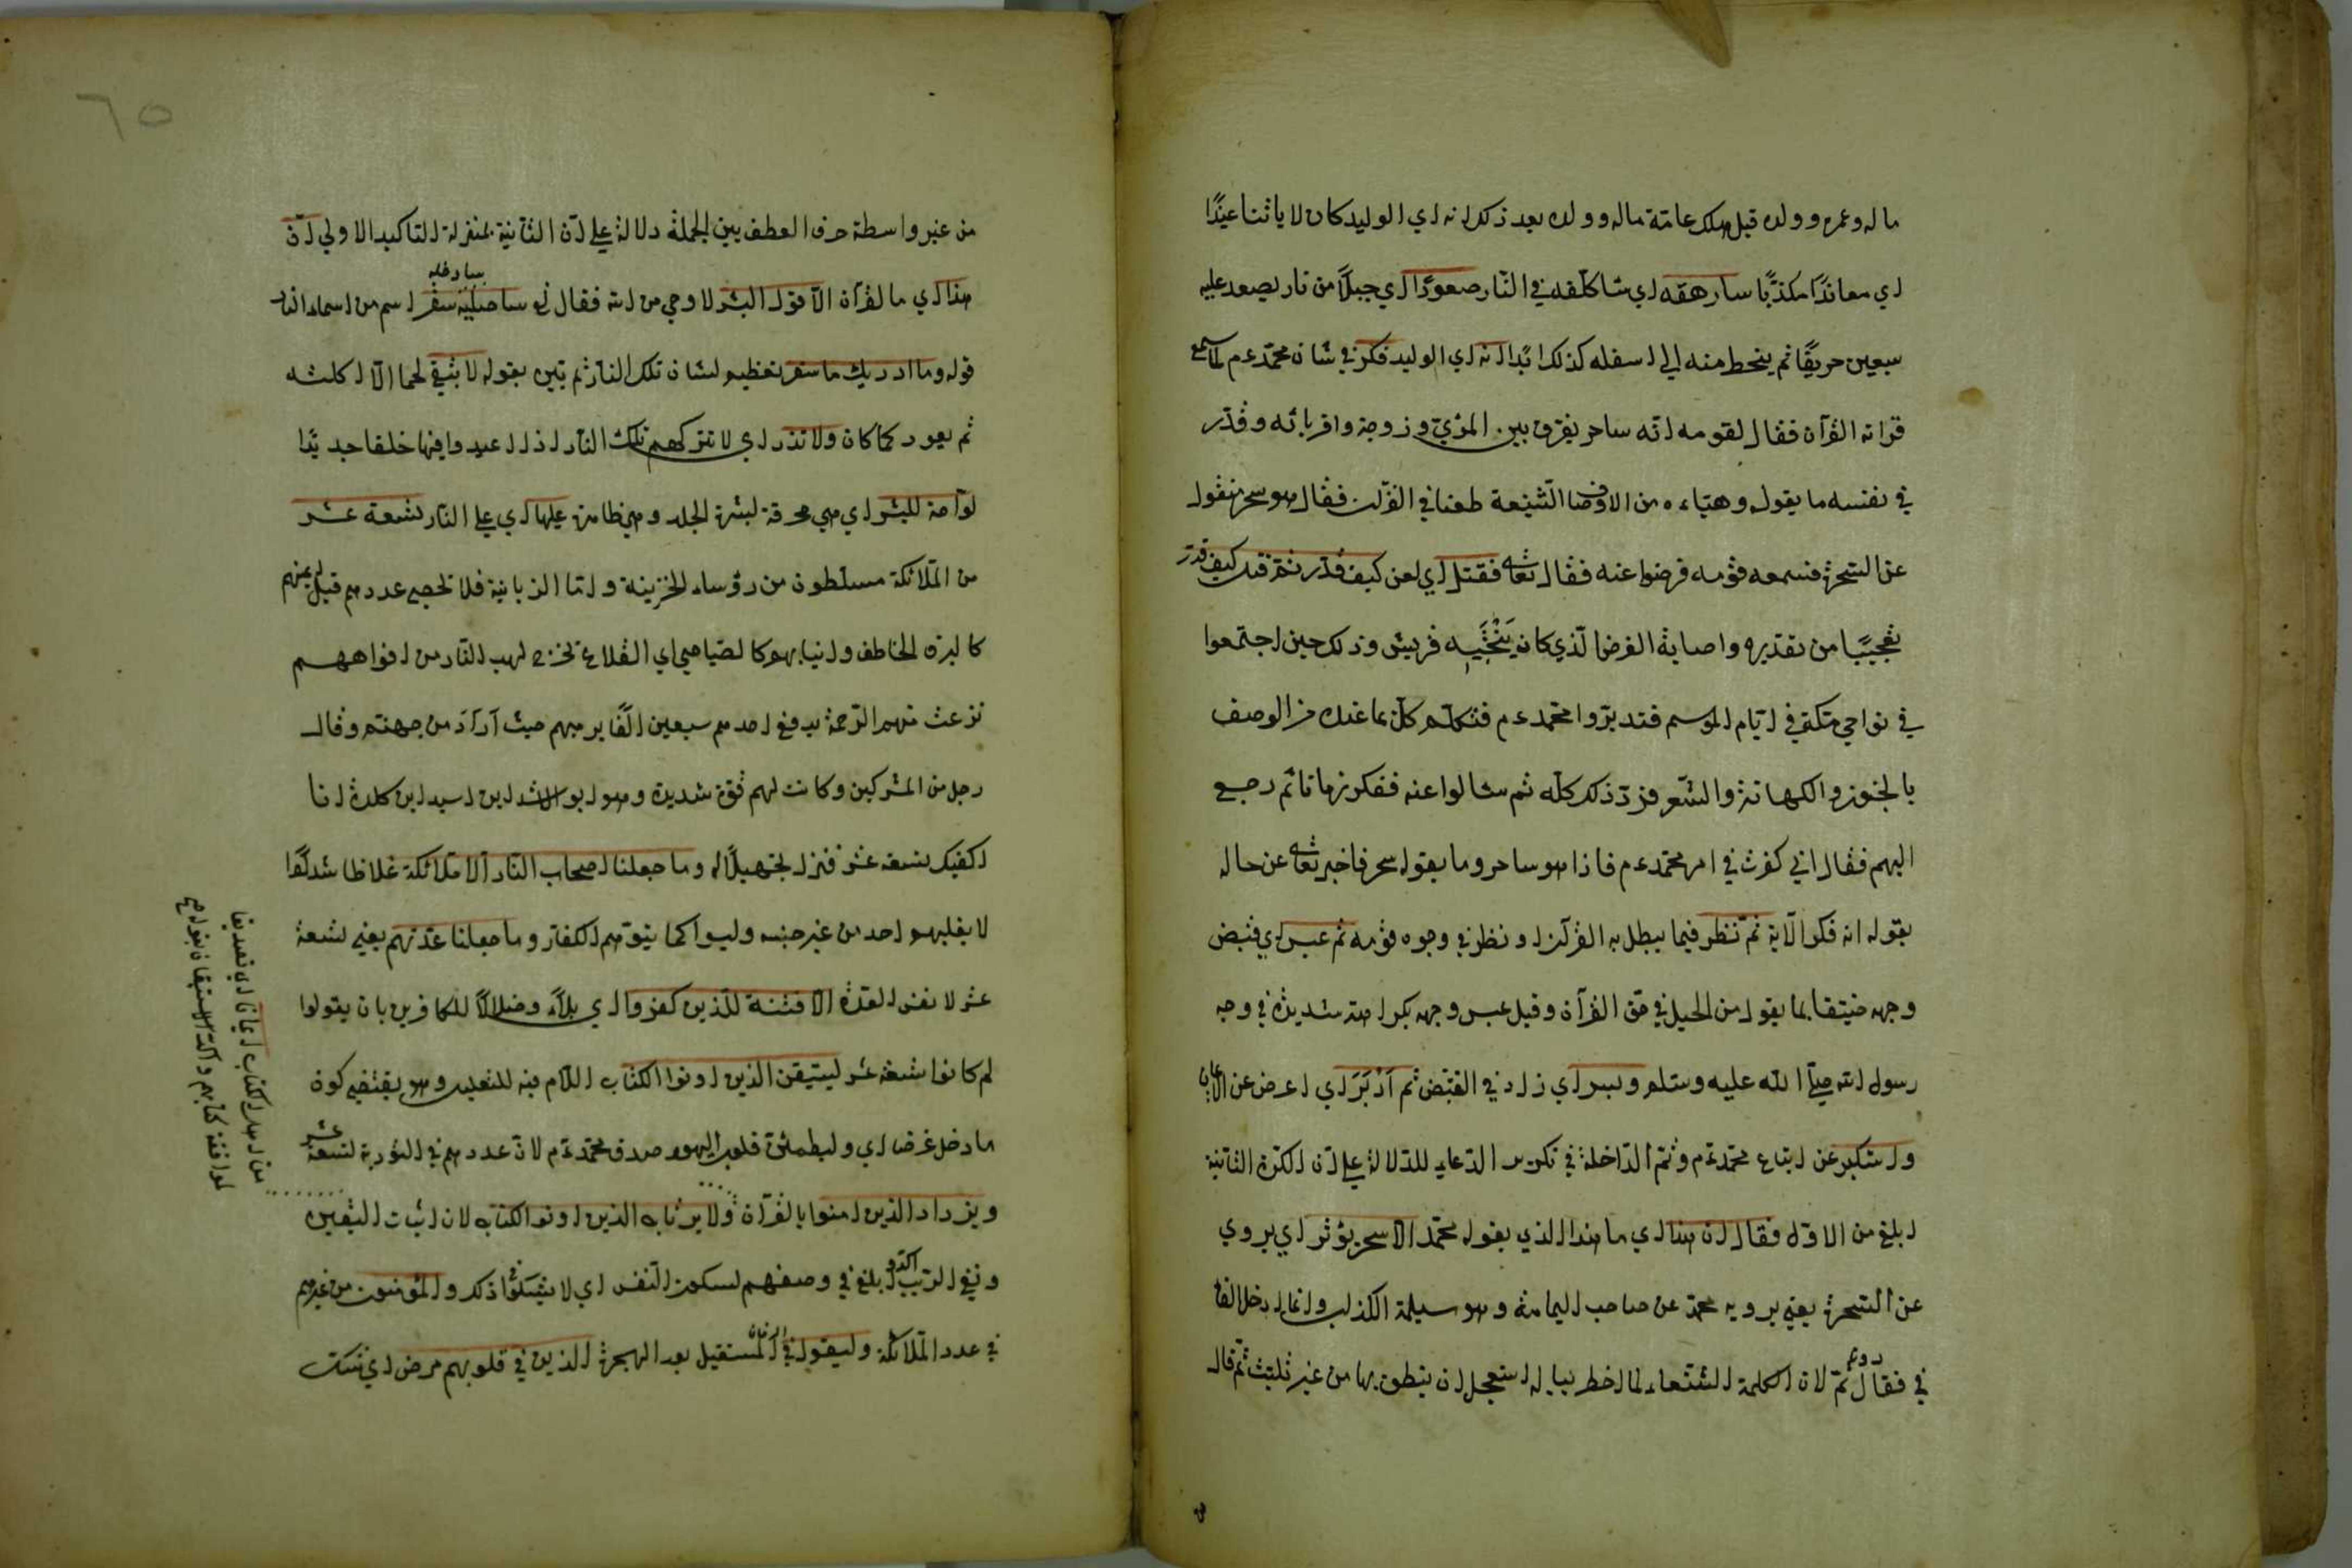 ماله وعمره وولده قبل هلك عامّة ماله وولده بعد ذكر انه اي الوليد كان لاياتنا عنيدًا
اي معاندًا مكذبًا سارهقه اي ساكلّفه في النّار صعودًا اي جبلًا من نار يصعد عليه
سبعين خريفًا ثم ينحط منه الي اسفله كذلك ابدًا انه اي الوليد فكر في شان محمّد عم لما سمع
قراته القرآن فقال لقومه انّه ساحر يفرق بين المرئ وزوجة واقربائه وقدّر
في نفسه ما يقول وهيّاءه من الاوصاف الشنيعة طعنا في القرآن فقال هو سحر منقول
عن السّحرة فسمعه قومه فرضوا عنه فقال تعالى فقتل اي لعن كيف قدّر ثم قتل كيف قدّر
تعجيبًا من تقديره واصابة الغرض الّذي كان قريش وذلك حين اجتمعوا
في نواحي مكة في ايّام الموسم فتدبّروا محمّد عم فتكلّم كلّ بما عنده من الوصف
بالجنون والكهانة والشّعر فردّ ذلك كلّه ثم سالوا عنه ففكر زمانا ثم رجع
اليهم فقال اني فكرت في امر محمّد عم فاذا هو ساحر وما يقوله سحر فاخبر تعالى عن حاله
بقوله انه فكر الآية ثمّ نظر فيما يبطل به القرآن او نظر في وجوه قومه ثم عبس اي قبض
وجهه ضيّقا بما يقول من الحيل في حق القرآن وقيل عبس وجهه بكراهة شديدة في وجه
رسول الله صلّى الله عليه وسلم وبسر اي زاد في القبض ثم اَدْبَرَ اي اعرض عن الايمان
واستكبر عن اتباع محمّد عم وثمّ الدّاخلة في تكرير الدّعاء للدّلالة على انّ الكرّة الثّانية
ابلغ من الاول فقال ان هذا اي ما هذا الذي يقول محمّد الا سحر يؤثر اي يروي
عن السّحرة يعني يرويه محمّد عن صاحب اليمامة وهو مسيلمة الكذاب وانما ادخل الفا
في فقال دون ثمّ لان الكلمة الشنعاء لما خطر بباله استعجل ان ينطق بها من غير تلبّث ثمّ قال
من غير واسطة حرف العطف بين الجملة دلالة على انّ الثّانية بمنزلة التاكيد الاولي انّ
هذا اي ما القرآن الّا قول البشر لا وحي من الله فقال اي ساصليه سادخله سقر اسم من اسماء النار
قوله وما ادريك ما سقر تعظيم لشان تلك النار ثم بيّن بقوله لا تبقي لحما الّا اكلته
ثم يعود كما كان ولا تذر اي لا تتركهم تلك النار اذا اعيدوا فيها خلقا جديدًا
لوّاحة للبشر اي هي محرقة لبشرة الجلد عليها اي على النار تسعة عشر
من الملائكة مسلّطون من رؤساء الخزينة وامّا الزبانية فلا تحصي عددهم قيل اعينهم
كالبرق الخاطف وانيابهم كالصياصي اي القلاع تخرج لهب النار من افواههم
نزعت منهم الرّحمة يدفع احدهم سبعين الفًا يرميهم حيث آراد من جهنم وقال
رجل من المشركين وكانت لهم قوّة شديدة وهو ابو الاشد ابن اسيد ابن كلدة انا
اكفيك تسعة عشر فنزل تجهيلًا له وما جعلنا اصحاب النّار الّا ملائكة غلاظا شدادًا
لا يغلبهم احد من غير جنسه وليسوا كما يتوهّم الكفار وما جعلنا عدّتهم يعني تسعة
عشر لا نفس العدّة الا فتنة للّذين كفروا اي بلاءً وضلالًا للكافرين بان يقولوا
لم كانوا تسعة عشر ليستيقن الذين اوتوا الكتاب اللّام فيه للتعليل وهو يقتضي كون
ما دخل غرض اي وليطمئن قلوب اليهود صدق محمّد عم لانّ عددهم في التورية تسعة عشر
ويزداد الذين امنوا بالقرآن ولا يرتاب الذين اوتوا الكتاب لان اثبات اليقين
ونفي الرّيب اكد وابلغ في وصفهم لسكون النّفس اي لا يشكّوا في ذلك والمؤمنون من غيرهم
في عدد الملائكة وليقول في الزمان المستقبل بعد الهجرة الذين في قلوبهم مرض اي شك
من اهل الكتاب ايمانا اي تصديقا
لموافقة كتابهم واكد الاستيقان بقوله